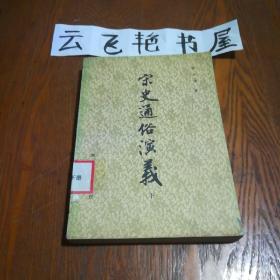 云飞艳书屋
宋史通俗演義
下
下册